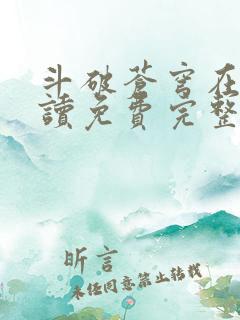 斗破苍穹在
讀免費完整
昕言
未经同意禁止转载